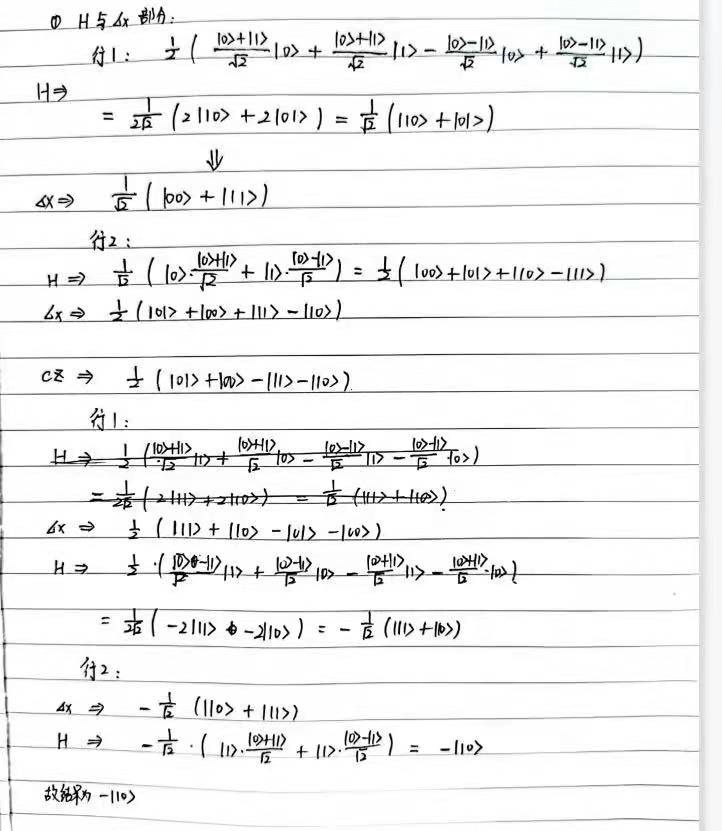 ① H与△x 部分:
行1: 1/2 ( (|0>+|1>)/√2 |0> + (|0>+|1>)/√2 |1> − (|0>−|1>)/√2 |0> + (|0>−|1>)/√2 |1> )
H⇒
= 1/(2√2) (2|10> + 2|01>) = 1/√2 (|10> + |01>)
⇓
△x⇒ 1/√2 ( |00> + |11>)
行2:
H ⇒ 1/√2 ( |0>·(|0>+|1>)/√2 + |1>·(|0>−|1>)/√2 ) = 1/2 ( |00>+|01>+|10>−|11>)
△x ⇒ 1/2 ( |01> + |00> + |11> − |10>)
CZ ⇒ 1/2 ( |01> + |00> − |11> − |10>)
行1:
H ⇒ 1/2 ( (|0>+|1>)/√2 |1> + (|0>+|1>)/√2 |0> − (|0>−|1>)/√2 |1> − (|0>−|1>)/√2 |0>)
= 1/(2√2) ( 2|11> + 2|10>) = 1/√2 (|11> + |10>)
△x ⇒ 1/2 ( |11> + |10> − |01> − |00>)
H ⇒ 1/2 · ( (|0>−|1>)/√2 |1> + (|0>−|1>)/√2 |0> − (|0>+|1>)/√2 |1> − (|0>+|1>)/√2 |0>)
= 1/(2√2) ( −2|11> −2|10>) = − 1/√2 (|11> + |10>)
行2:
△x ⇒ − 1/√2 (|10> + |11>)
H ⇒ − 1/√2 · ( |1>·(|0>+|1>)/√2 + |1>·(|0>−|1>)/√2 ) = −|10>
故结果为 −|10>